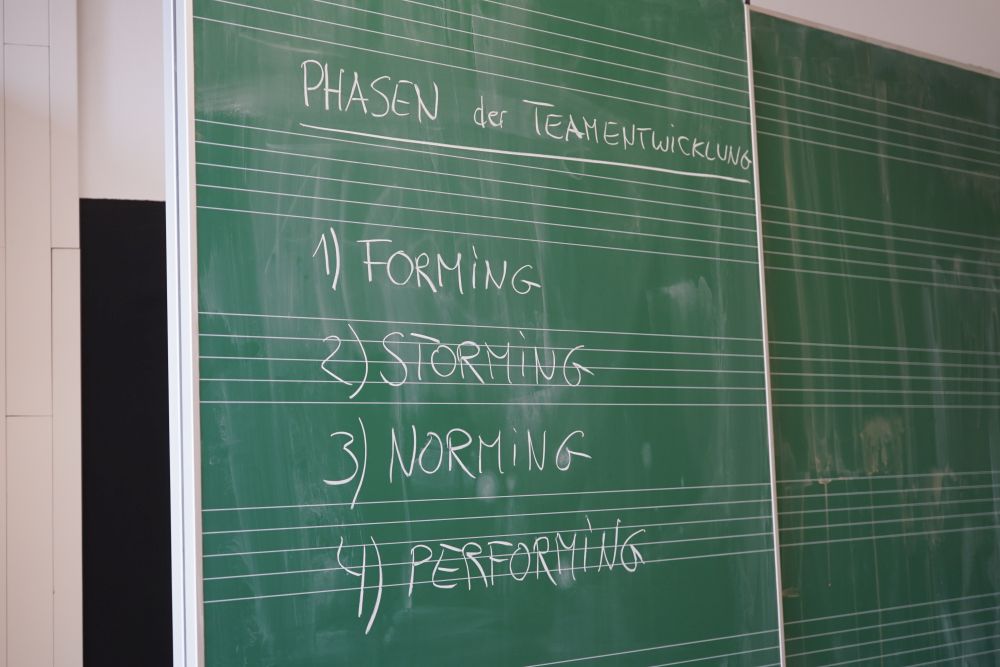 PHASEN der TEAMENTWICKLUNG
1) FORMING
2) STORMING
3) NORMING
4) PERFORMING